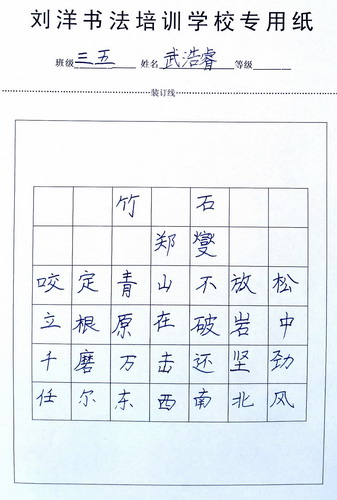 刘洋书法培训学校专用纸
班级三五 姓名武浩睿等级
装订线
竹石
郑燮
咬定青山不放松
立根原在破岩中
千磨万击还坚劲
任尔东西南北风